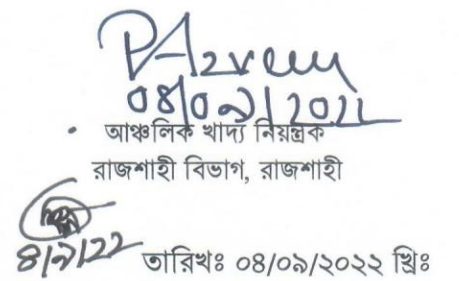 ০৪/০৯/2022
আঞ্চলিক খাদ্য নিয়ন্ত্রক
রাজশাহী বিভাগ, রাজশাহী
৪/৯/22
তারিখঃ ০৪/০৯/২০২২ খ্রিঃ